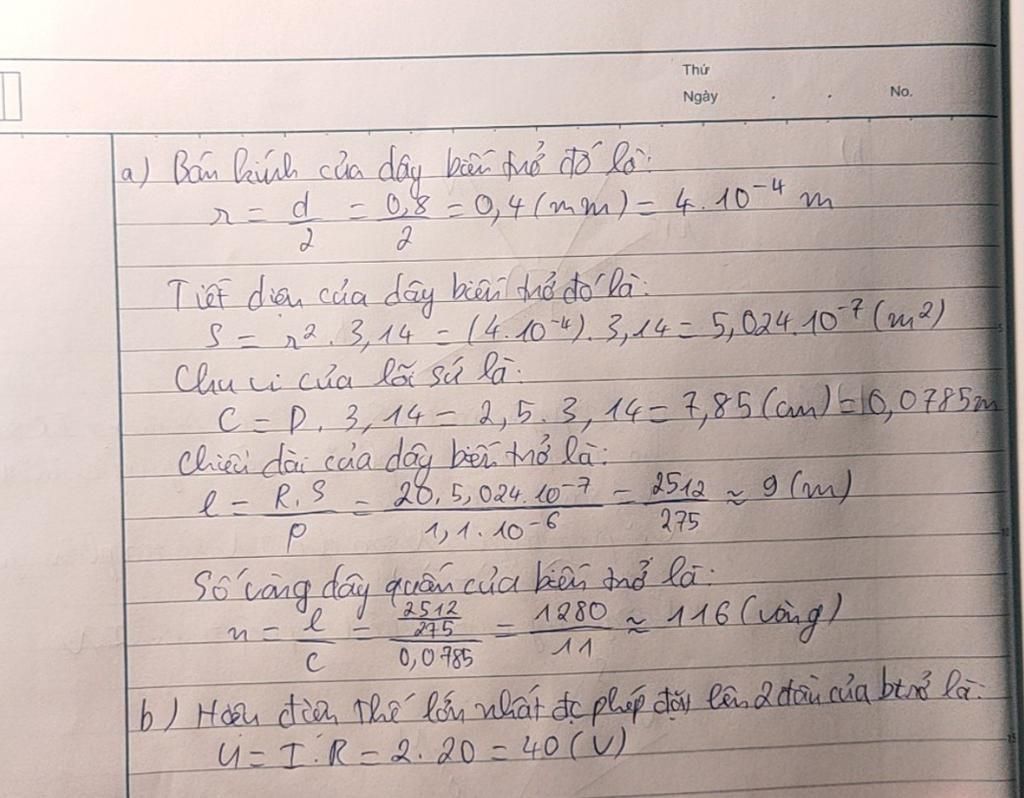 Thứ
Ngày . . No.
a) Bán kính của dây biến trở đó là:
r = d/2 = 0,8/2 = 0,4 (mm) = 4.10⁻⁴ m
Tiết diện của dây biến trở đó là:
S = r². 3,14 = (4.10⁻⁴). 3,14 = 5,024.10⁻⁷ (m²)
Chu vi của lõi sứ là:
C = D. 3,14 = 2,5. 3,14 = 7,85 (cm) = 0,0785m
Chiều dài của dây biến trở là:
l = R.S/ρ = 20.5,024.10⁻⁷/1,1.10⁻⁶ = 2512/275 ≈ 9 (m)
Số vòng dây quấn của biến trở là:
n = l/C = 2512/275/0,0785 = 1280/11 ≈ 116 (vòng)
b) Hiệu điện thế lớn nhất đc phép đặt lên 2 đầu của btrở là:
U = I.R = 2.20 = 40 (V)